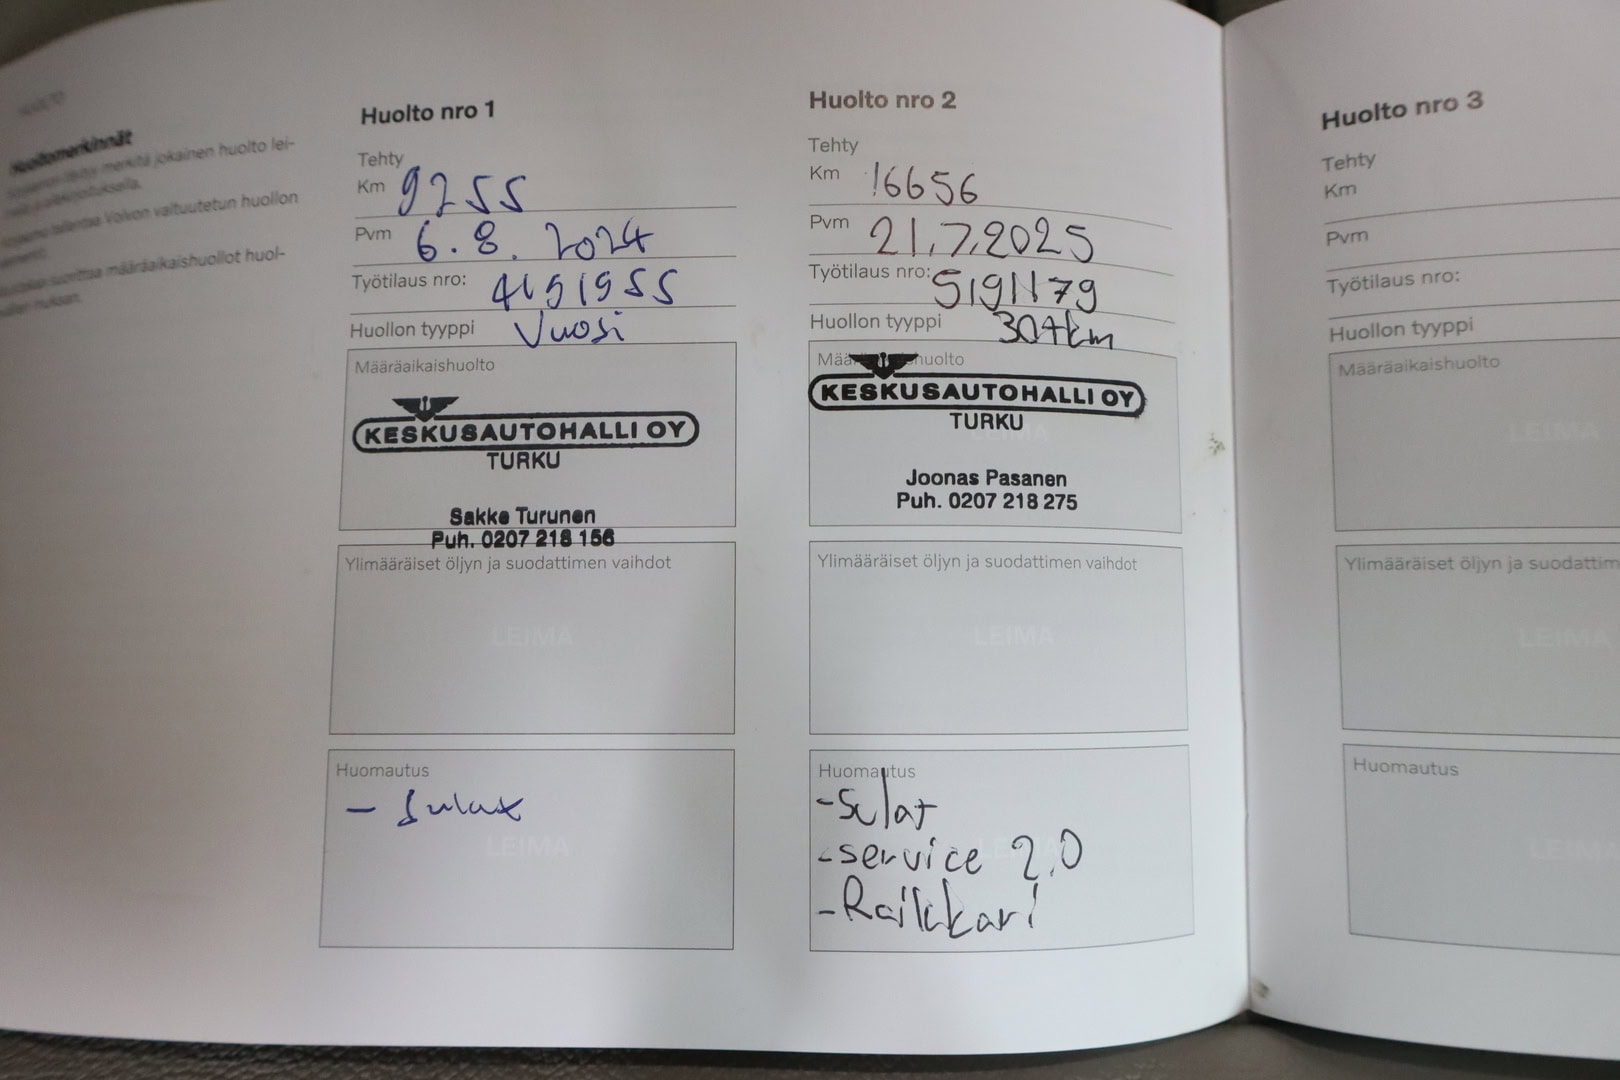 HUOLTO
Huoltomerkinnät
merkitä jokainen huolto lei-
ja allekirjoituksella.
tallentaa Volvon valtuutetun huollon
suorittaa määräaikaishuollot huol-
mukaan.
Huolto nro 1
Tehty
Km 9255
Pvm 6.8.2024
Työtilaus nro: 4191955
Huollon tyyppi Vuosi
Määräaikaishuolto
KESKUSAUTOHALLI OY
TURKU
Sakke Turunen
Puh. 0207 218 156
Ylimääräiset öljyn ja suodattimen vaihdot
LEIMA
Huomautus
- Sulat
LEIMA
Huolto nro 2
Tehty
Km 16656
Pvm 21.7.2025
Työtilaus nro: 5191179
Huollon tyyppi 30tkm
Määräaikaishuolto
KESKUSAUTOHALLI OY
TURKU
LEIMA
Joonas Pasanen
Puh. 0207 218 275
Ylimääräiset öljyn ja suodattimen vaihdot
LEIMA
Huomautus
-Sulat
-service 2.0
-Raikkari
Huolto nro 3
Tehty
Km
Pvm
Työtilaus nro:
Huollon tyyppi
Määräaikaishuolto
LEIMA
Ylimääräiset öljyn ja suodattim
LEIMA
Huomautus
LEIMA